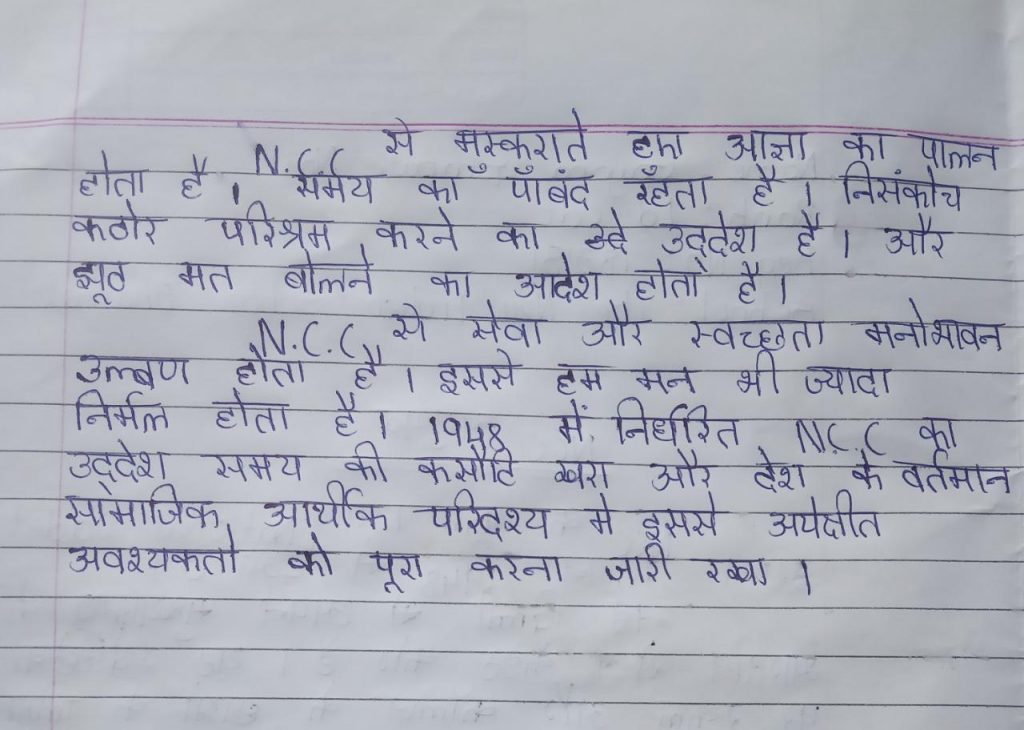 N.C.C से मुस्कुराते हुए आज्ञा का पालन
होता है। समय का पाँबंद रहता है। निसंकोच
कठोर परिश्रम करने का उद्दे उद्देश है। और
झूठ मत बोलने का आदेश होता है।
N.C.C से सेवा और स्वच्छता मनोभावन
उल्बण होता है। इससे हम मन भी ज्यादा
निर्मल होता है। 1948 में निर्धारित N.C.C का
उद्देश समय की कसौटि खरा और देश के वर्तमान
सामाजिक, आर्थीक परिदृश्य मे इससे अपेक्षीत
अवश्यकतो को पूरा करना जारी रखा।